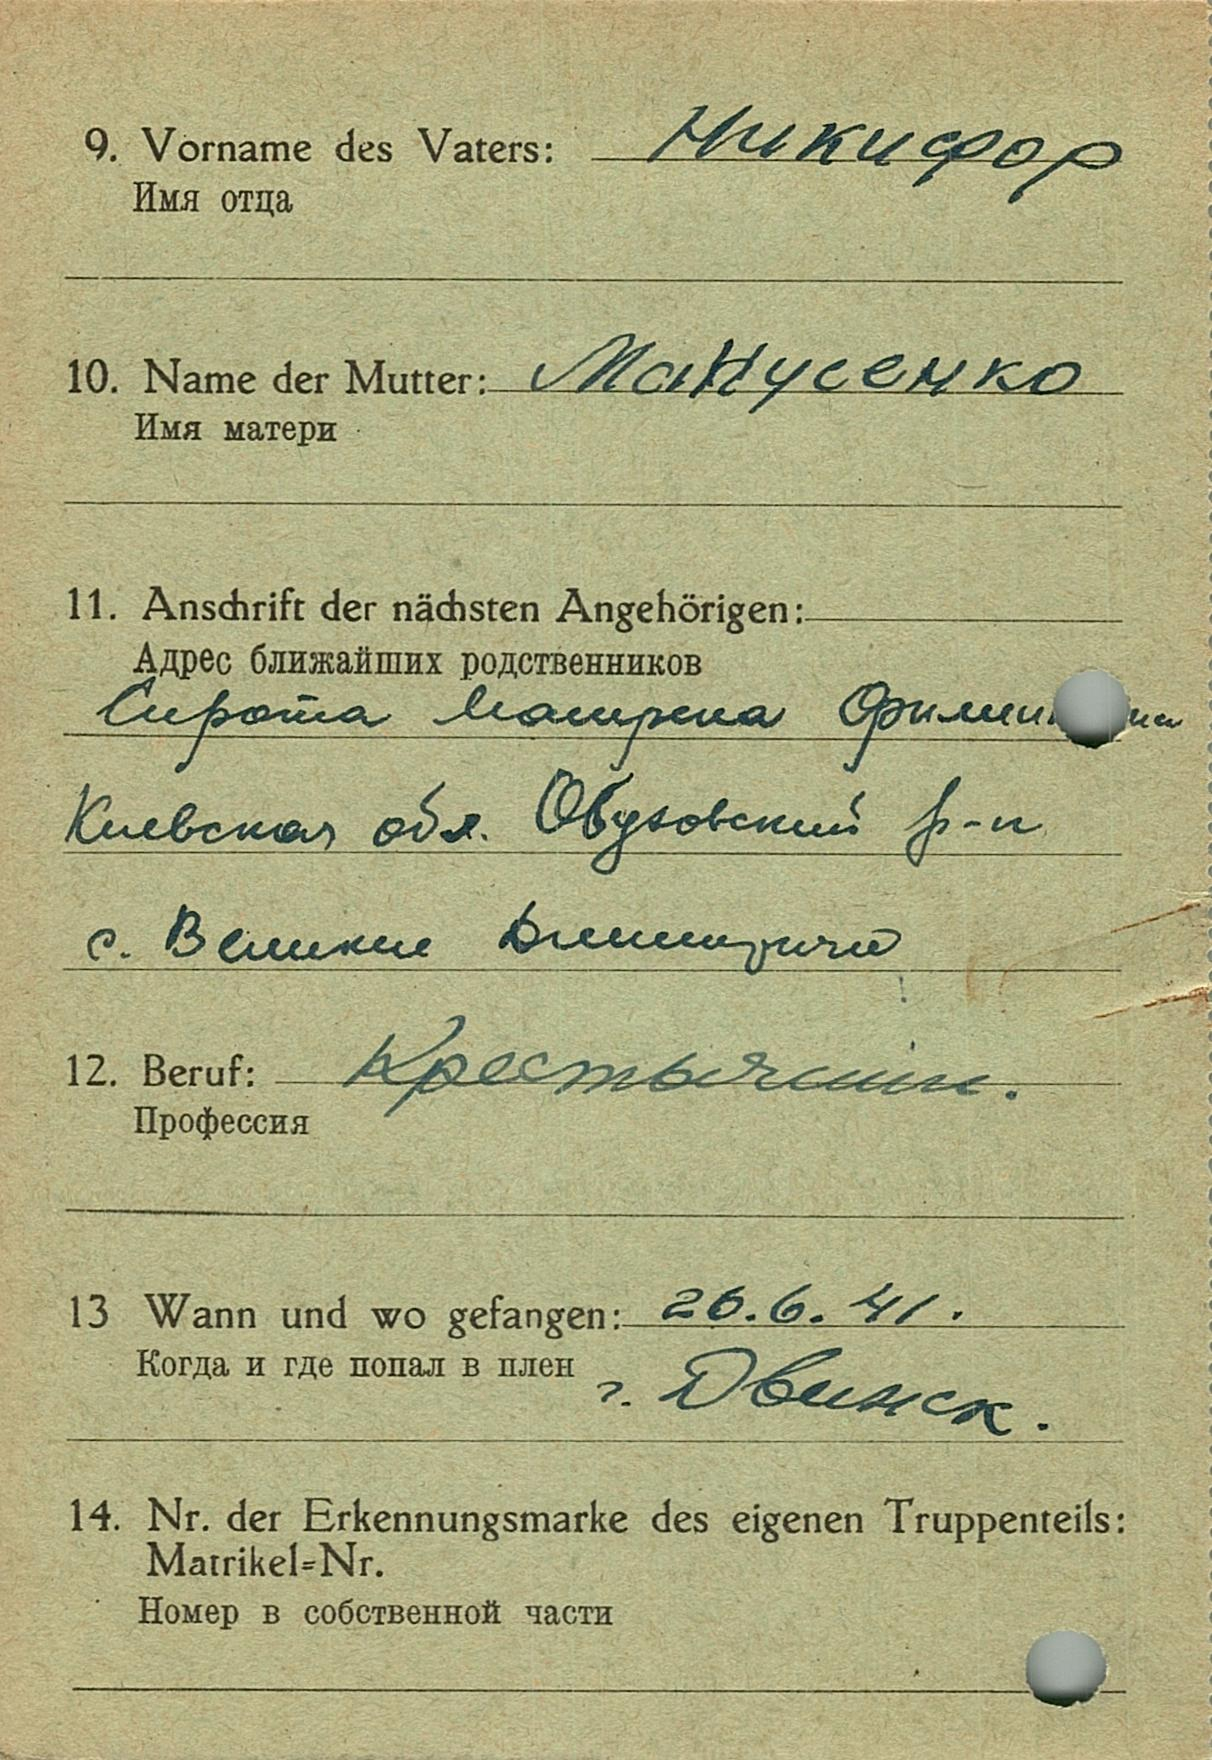 9. Vorname des Vaters: Никифор
Имя отца
10. Name der Mutter: Манусенко
Имя матери
11. Anschrift der nächsten Angehörigen:
Адрес ближайших родственников
Сирота Матрена
Киевская обл. Обуховский р-н
с. Великие
12. Beruf: Крестьянин.
Профессия
13 Wann und wo gefangen: 26.6.41.
Когда и где попал в плен г. Двинск.
14. Nr. der Erkennungsmarke des eigenen Truppenteils:
Matrikel=Nr.
Номер в собственной части